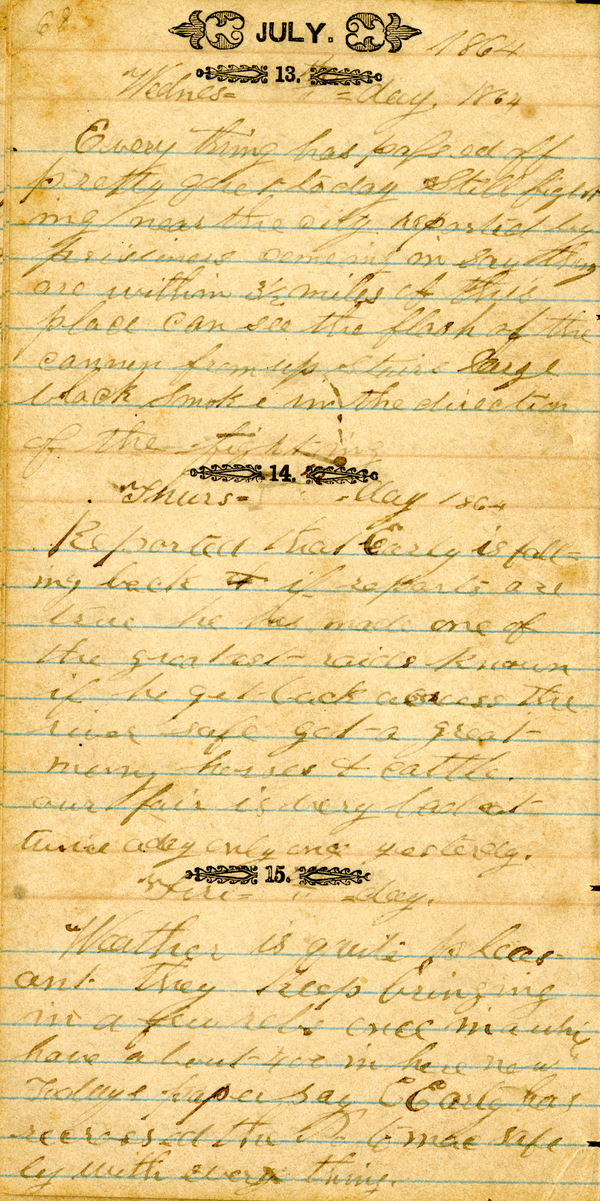 68
JULY. 1864
13.
Wednes= =day, 1864
Every thing has passed off
pretty quiet today Still fight
ing near the city reported by
prisiners comeing in say they
are within 3½ miles of this
place can see the flash of the
cannen from up Stairs Large
black Smoke in the direction
of the fighting
14.
Thurs= =day 1864
Reported that Early is fall=
ing back & if reparts are
true he has made one of
the greatest raids known
if he get back across the
river safe got a great
meny horses & cattle.
our fair is very bad eat
twice a day only once yesterday.
15.
Fri= =day.
Weather is quite pleas
ant They keep bringing
in a few rebs once in a whil
have about 400 in here now
Todays paper say Early has
recrossed the safe
ly with every thing.